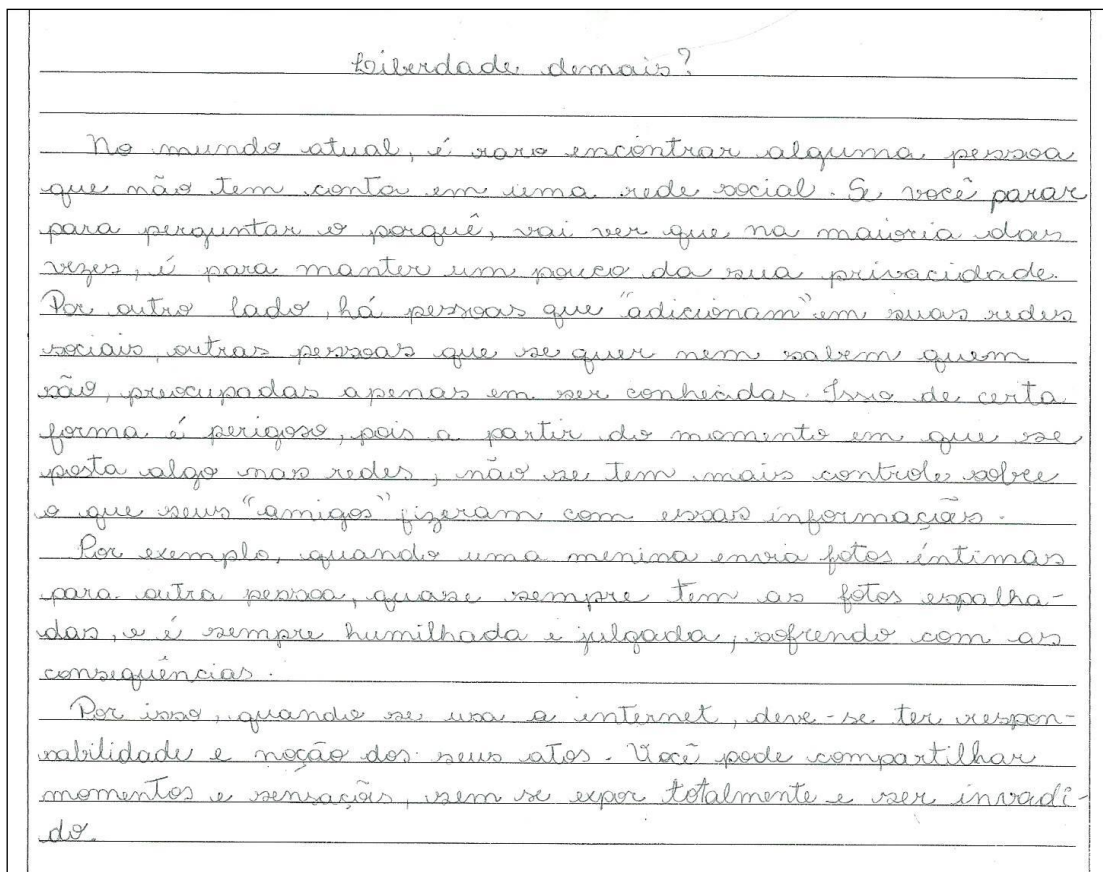 Liberdade demais?
No mundo atual, é raro encontrar alguma pessoa
que não tem conta em uma rede social. Se você parar
para perguntar o porquê, vai ver que na maioria das
vezes, é para manter um pouco da sua privacidade.
Por outro lado, há pessoas que "adicionam" em suas redes
sociais, outras pessoas que se quer nem sabem quem
são, preocupadas apenas em ser conhecidas. Isso de certa
forma é perigoso, pois a partir do momento em que se
posta algo nas redes, não se tem mais controle sobre
o que seus "amigos" fizeram com essas informações.
Por exemplo, quando uma menina envia fotos íntimas
para outra pessoa, quase sempre tem as fotos espalha-
das, e é sempre humilhada e julgada, sofrendo com as
consequências.
Por isso, quando se usa a internet, deve-se ter respon-
sabilidade e noção dos seus atos. Você pode compartilhar
momentos e sensações, sem se expor totalmente e ser invadi-
do.